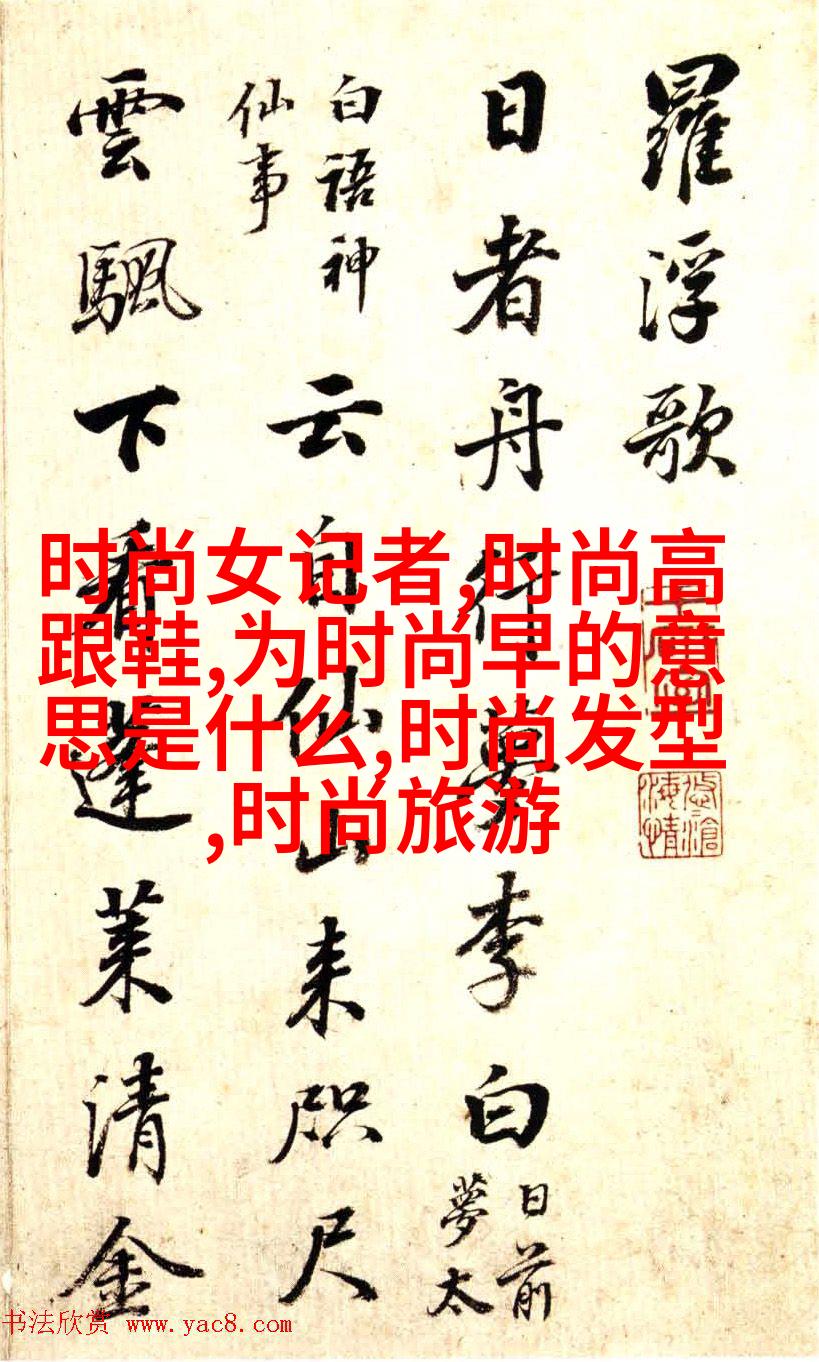 羅浮歌
日者舟行夢李白
日前
夢太
白語神
仙事
云自仙山来咫尺
雲颿下看蓬莱清金
时尚女记者,时尚高
跟鞋,为时尚早的意
思是什么,时尚发型
,时尚旅游
书法欣赏 www.yac8.com